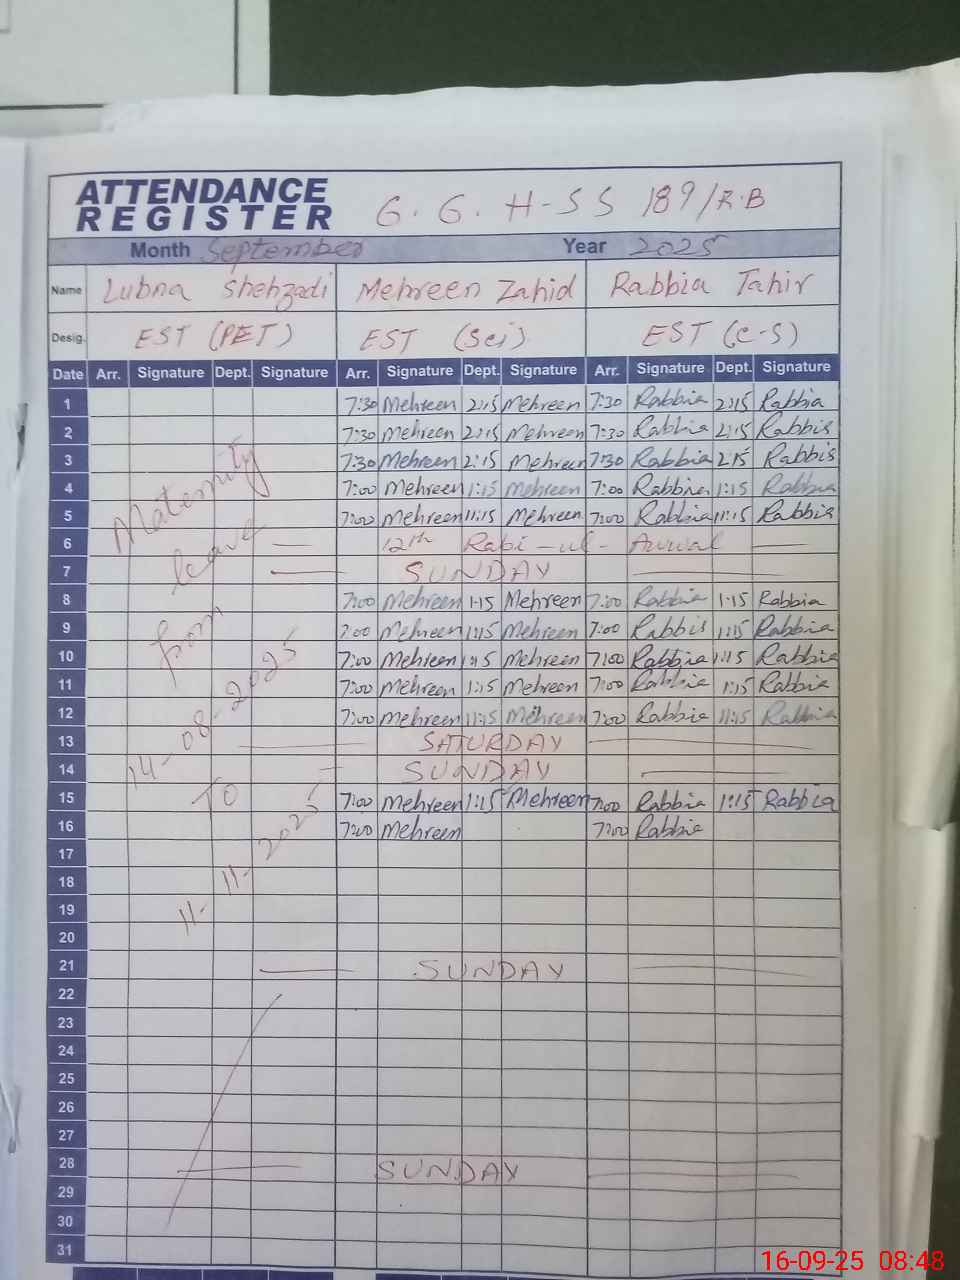 ATTENDANCE
REGISTER
G. G. H-SS 189/R.B
Month September Year 2025
Name Lubna Shehzadi Mehreen Zahid Rabbia Tahir
Desig. EST (PET) EST (Sci) EST (C-S)
Date Arr. Signature Dept. Signature Arr. Signature Dept. Signature Arr. Signature Dept. Signature
1 7:30 Mehreen 2:15 Mehreen 7:30 Rabbia 2:15 Rabbia
2 7:30 Mehreen 2:15 Mehreen 7:30 Rabbia 2:15 Rabbia
3 7:30 Mehreen 2:15 Mehreen 7:30 Rabbia 2:15 Rabbia
4 7:00 Mehreen 1:15 Mehreen 7:00 Rabbia 1:15 Rabbia
5 7:00 Mehreen 11:15 Mehreen 7:00 Rabbia 11:15 Rabbia
6 12th Rabi-ul-Awwal
7 SUNDAY
8 7:00 Mehreen 1:15 Mehreen 7:00 Rabbia 1:15 Rabbia
9 7:00 Mehreen 1:15 Mehreen 7:00 Rabbia 1:15 Rabbia
10 7:00 Mehreen 1:15 Mehreen 7:00 Rabbia 1:15 Rabbia
11 7:00 Mehreen 1:15 Mehreen 7:00 Rabbia 1:15 Rabbia
12 7:00 Mehreen 11:15 Mehreen 7:00 Rabbia 11:15 Rabbia
13 SATURDAY
14 SUNDAY
15 7:00 Mehreen 1:15 Mehreen 7:00 Rabbia 1:15 Rabbia
16 7:00 Mehreen 7:00 Rabbia
17
18
19
20
21 SUNDAY
22
23
24
25
26
27
28 SUNDAY
29
30
31
Maternity
leave
from
14-08-2025
To
11-11-2025
16-09-25 08:48